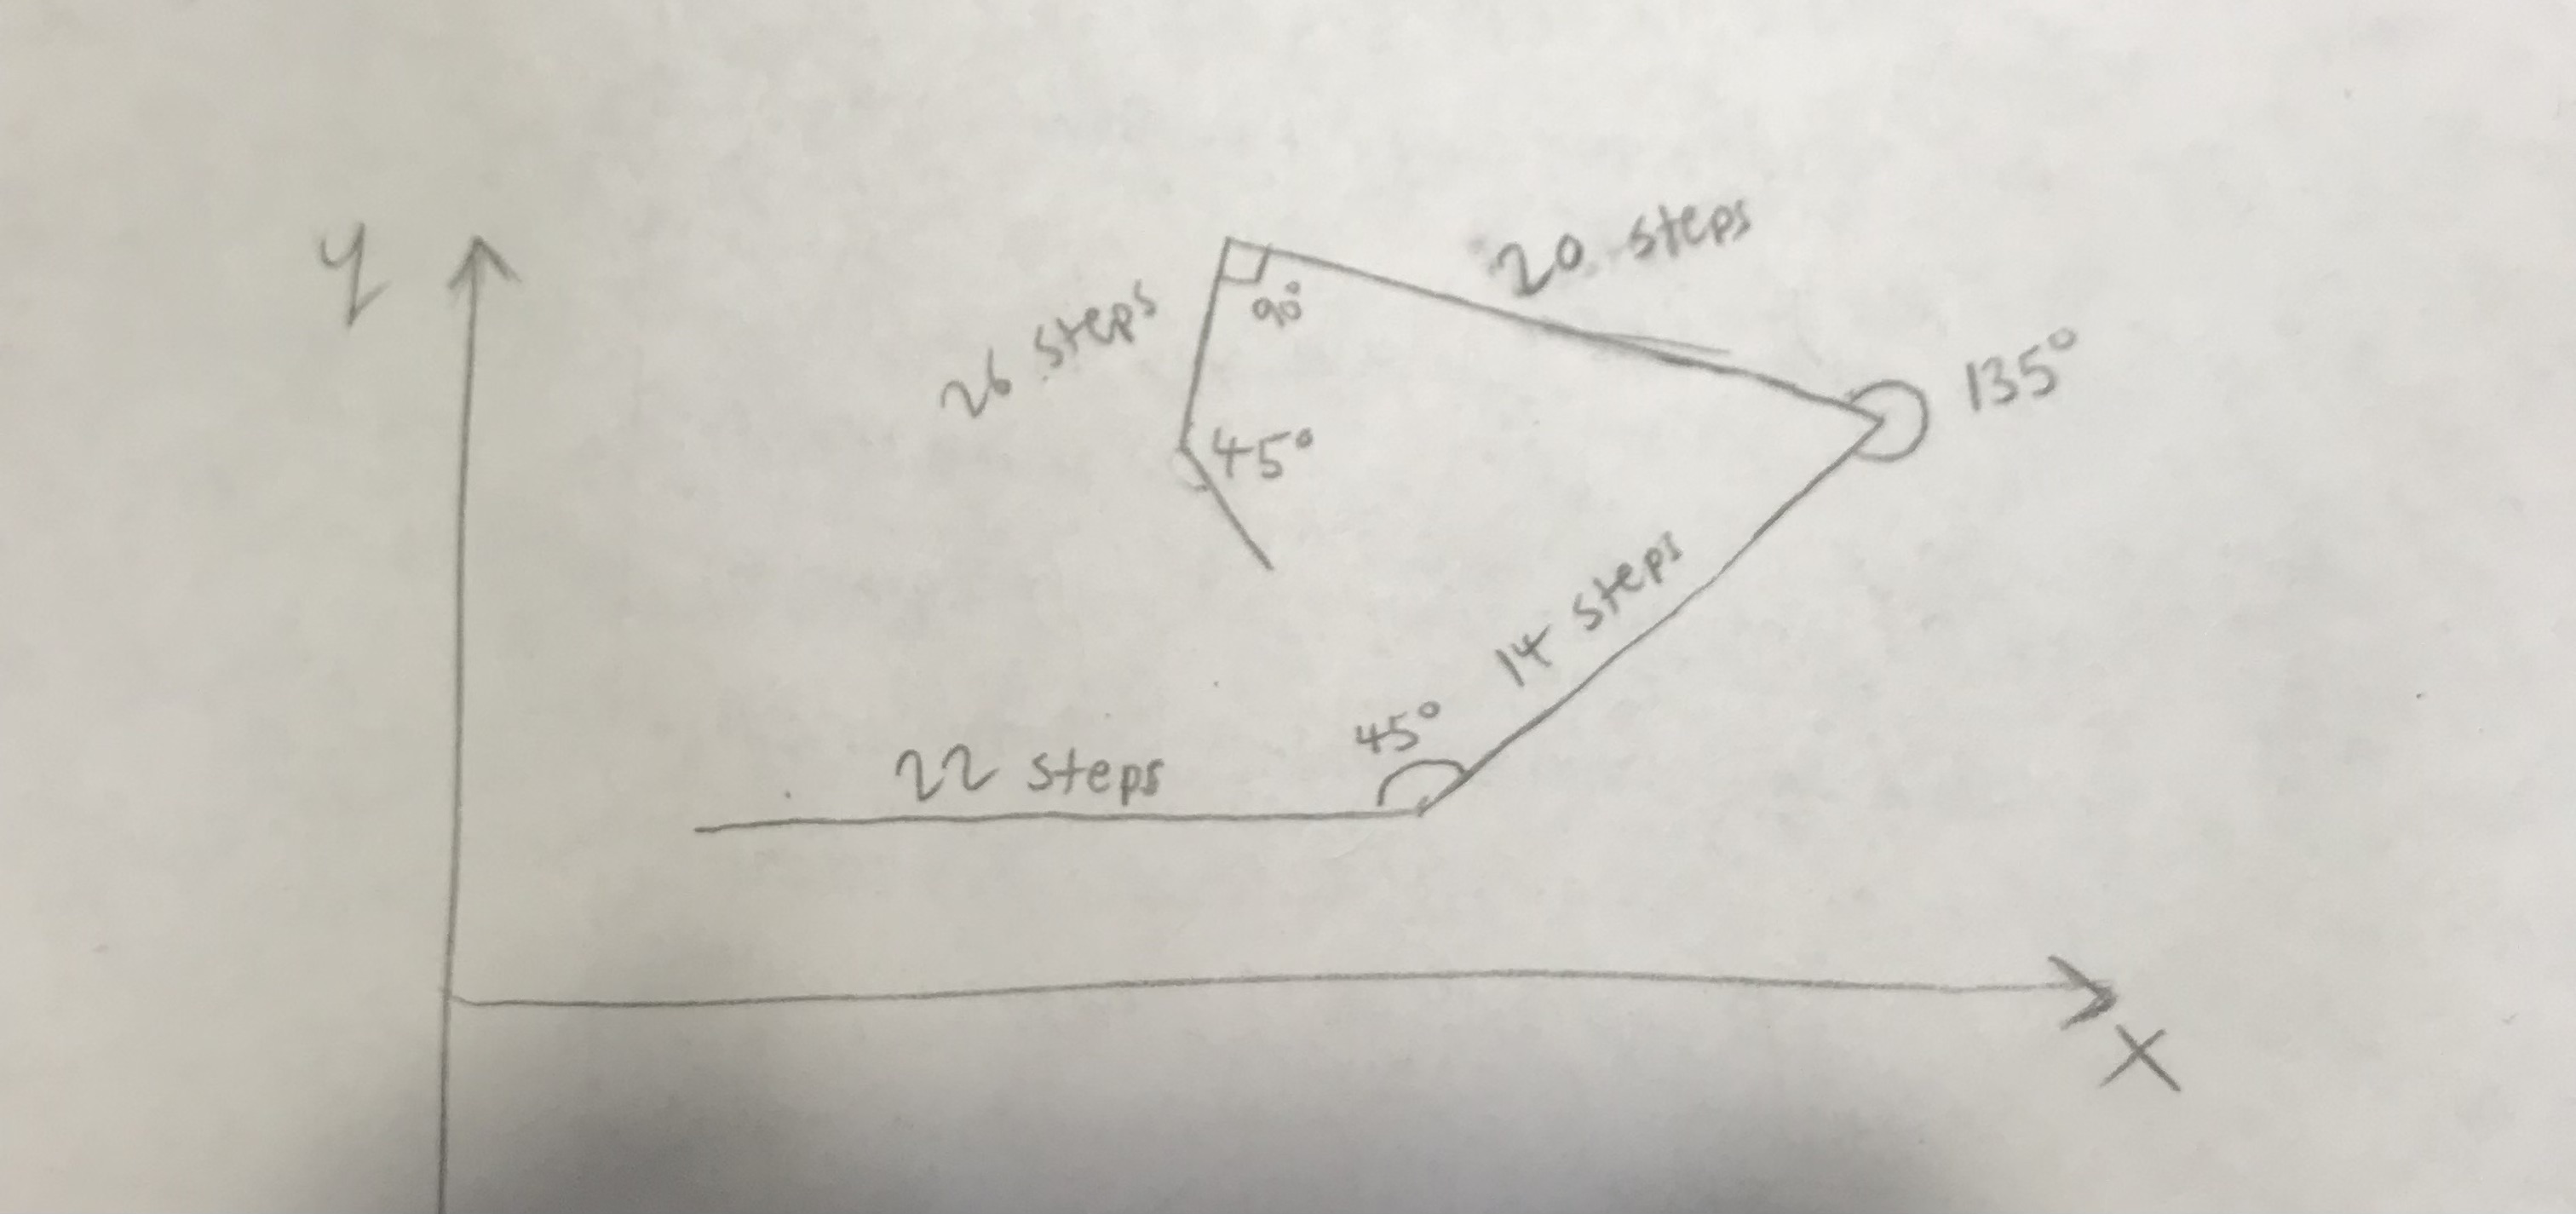 y
20 steps
26 steps
90°
135°
45°
14 steps
45°
22 steps
X